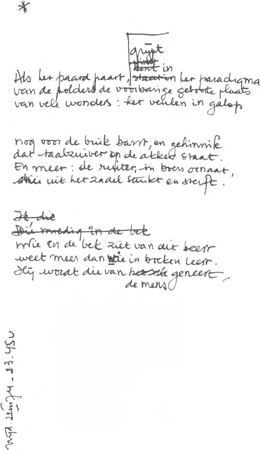 *
grijpt
in
Als het paard paart, het paradigma
van de polders de voorbarige geboorte plaats
van vele wonders: het veulen in galop
nog voor de buik barst, en gehinnik
dat taalzuiver op de akker staat.
En meer: de ruiter, in boers ornaat,
die uit het zadel stinkt en sterft.
Ik die
Die moedig in de bek
Wie in de bek ziet van dit beest
weet meer dan wie in boeken leest.
Hij wordt die van geneert,
de mens